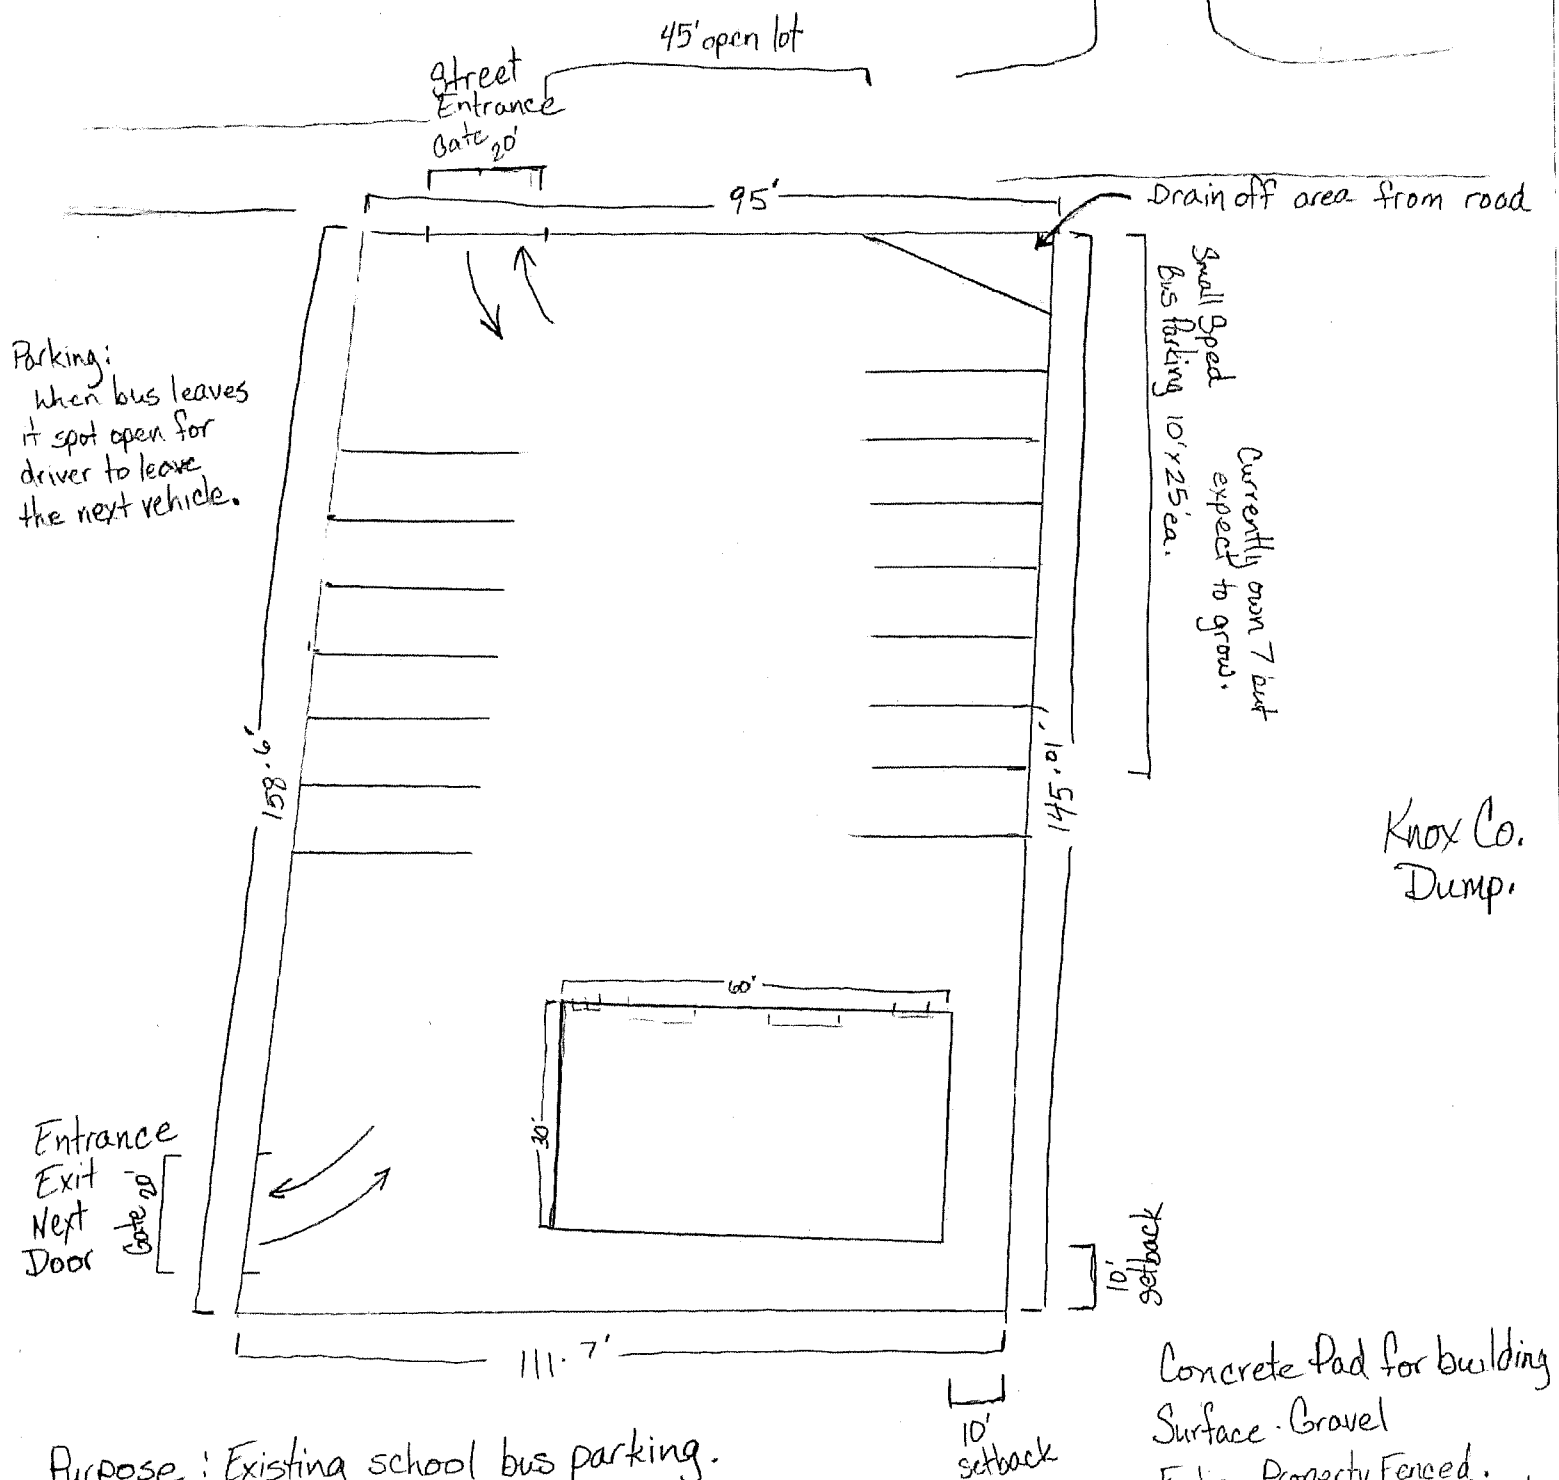 45' open lot
Street
Entrance
Gate 20'
95'
Drain off area from road
Small Sped
Bus Parking 10'x25' ea.
Currently own 7 but
expect to grow.
Parking:
When bus leaves
it spot open for
driver to leave
the next vehicle.
158.6'
145.10'
Knox Co.
Dump.
60'
30'
Entrance
Exit
Next
Door
Gate 20'
10'
setback
111.7'
10'
setback
Concrete Pad for building
Surface. Gravel
Property Fenced.
Purpose: Existing school bus parking.